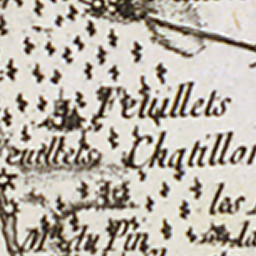 Feuillets
Feuillets Chatillon
las
du Pin la